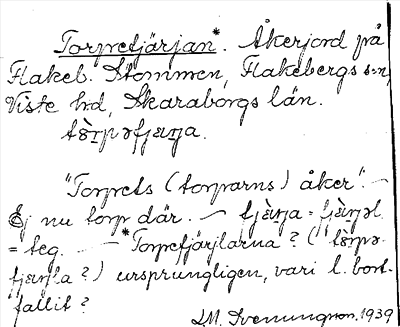 Torpefjärjan*. Åkerjord på
Flakeb. Stommen, Flakebergs s:n,
Viste hd, Skaraborgs län.
tòrpəfjæŋa.
"Torpets (torparns) åker". —
Ej nu torp där. — fjæ̀ŋa = fjæ̀ŋəl
= teg. — *Torpefjärjlarna? (tòrpə-
fjæŋla?) ursprungligen, vari l. bort-
fallit?
1939